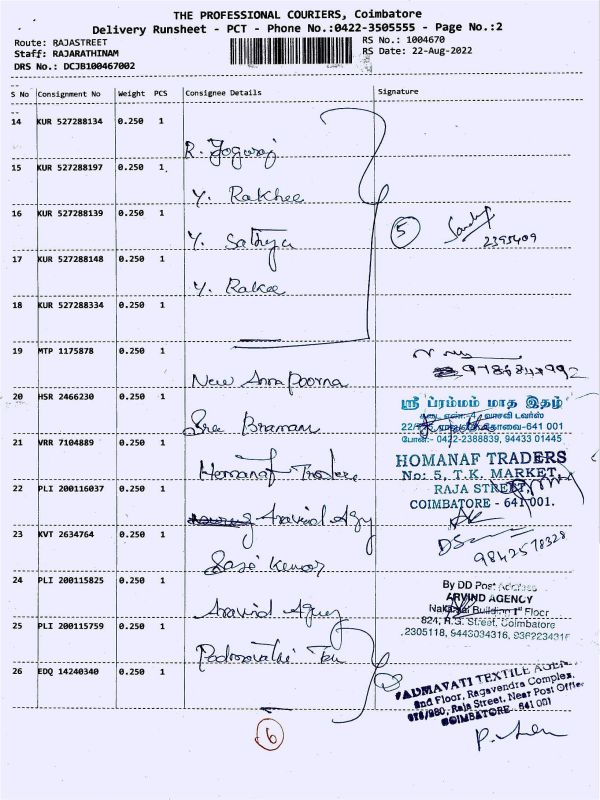 THE PROFESSIONAL COURIERS, Coimbatore
Delivery Runsheet - PCT - Phone No.:0422-3505555 - Page No.:2
Route: RAJASTREET
RS No.: 1004670
Staff: RAJARATHINAM
RS Date: 22-Aug-2022
DRS No.: DCJB100467002
S No Consignment No Weight PCS Consignee Details Signature
14 KUR 527288134 0.250 1
R. Yogaraj
15 KUR 527288197 0.250 1
Y. Rakhee
16 KUR 527288139 0.250 1
Y. Sathya
5
2395409
17 KUR 527288148 0.250 1
Y. Rakee
18 KUR 527288334 0.250 1
19 MTP 1175878 0.250 1
New Annapoorna
20 HSR 2466230 0.250 1
Sree Bramam
ஸ்ரீ ப்ரம்மம் மாத இதழ்
போன்:- 0422-2388839, 94433 01445
21 VRR 7104889 0.250 1
Homanaf Traders
HOMANAF TRADERS
No: 5, T.K. MARKET,
RAJA STREET,
COIMBATORE - 641 001.
22 PLI 200116037 0.250 1
Aravind Agy
23 KVT 2634764 0.250 1
Sasi Kumar
9842578328
24 PLI 200115825 0.250 1
Aravind Agncy
By DD Post Address
ARVIND AGENCY
Building 1st Floor
824, R.G. Street, Coimbatore
2305118, 9443034316, 9362234316
25 PLI 200115759 0.250 1
Padmavathi Tex
26 EDQ 14240340 0.250 1
PADMAVATI TEXTILE AGENCY
2nd Floor, Ragavendra Complex,
Raja Street, Near Post Office
COIMBATORE 641 001
6